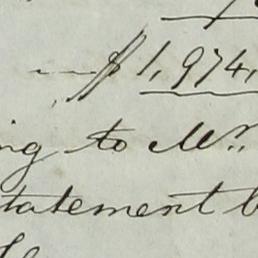 $1,974.
ing to Mr.
statement b